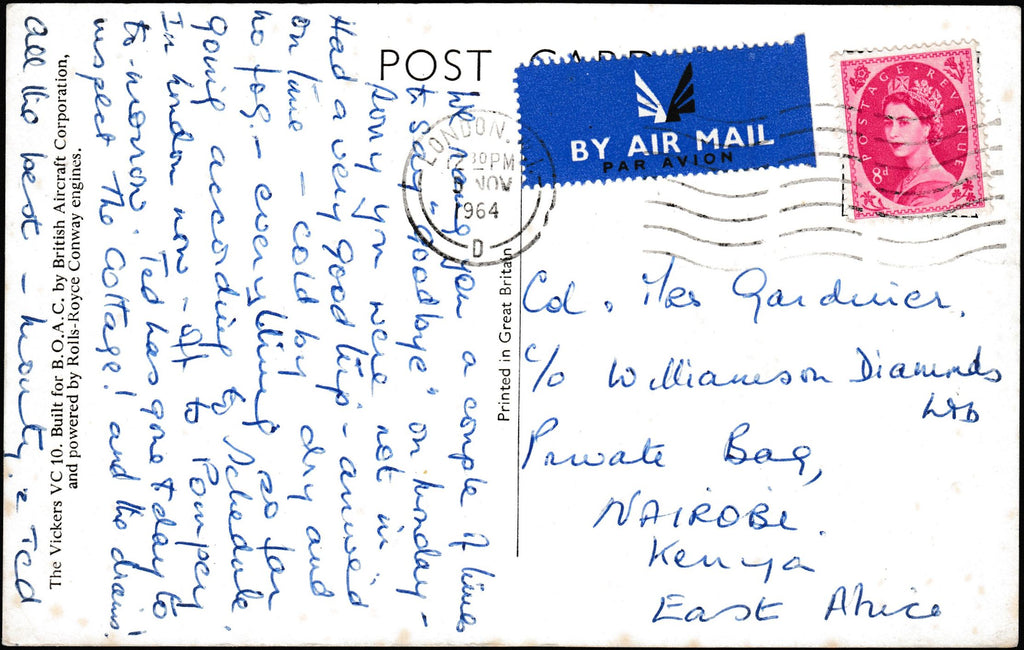 POST CARD
BY AIR MAIL
PAR AVION
POSTAGE REVENUE
8d
LONDON.
30PM
NOV
1964
D
We rang you a couple of times
to say "Goodbye" on Monday -
Sorry you were not in.
Had a very good trip - arrived
on time - cold by dry and
no fog. - everything so far
going according to Schedule.
In London now - off to Pompey
to-morrow. Ted has gone today to
inspect the Cottage! and the drains!
all the best - Monty & Ted
The Vickers VC 10. Built for B.O.A.C. by British Aircraft Corporation,
and powered by Rolls-Royce Conway engines.
Printed in Great Britain
Col. Mrs Gardiner.
c/o Williamson Diamonds
Ltd
Private Bag,
NAIROBI.
Kenya
East Africa